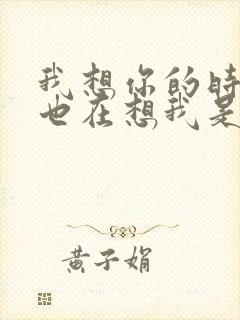 我想你的时
也在想我是
黄子娟